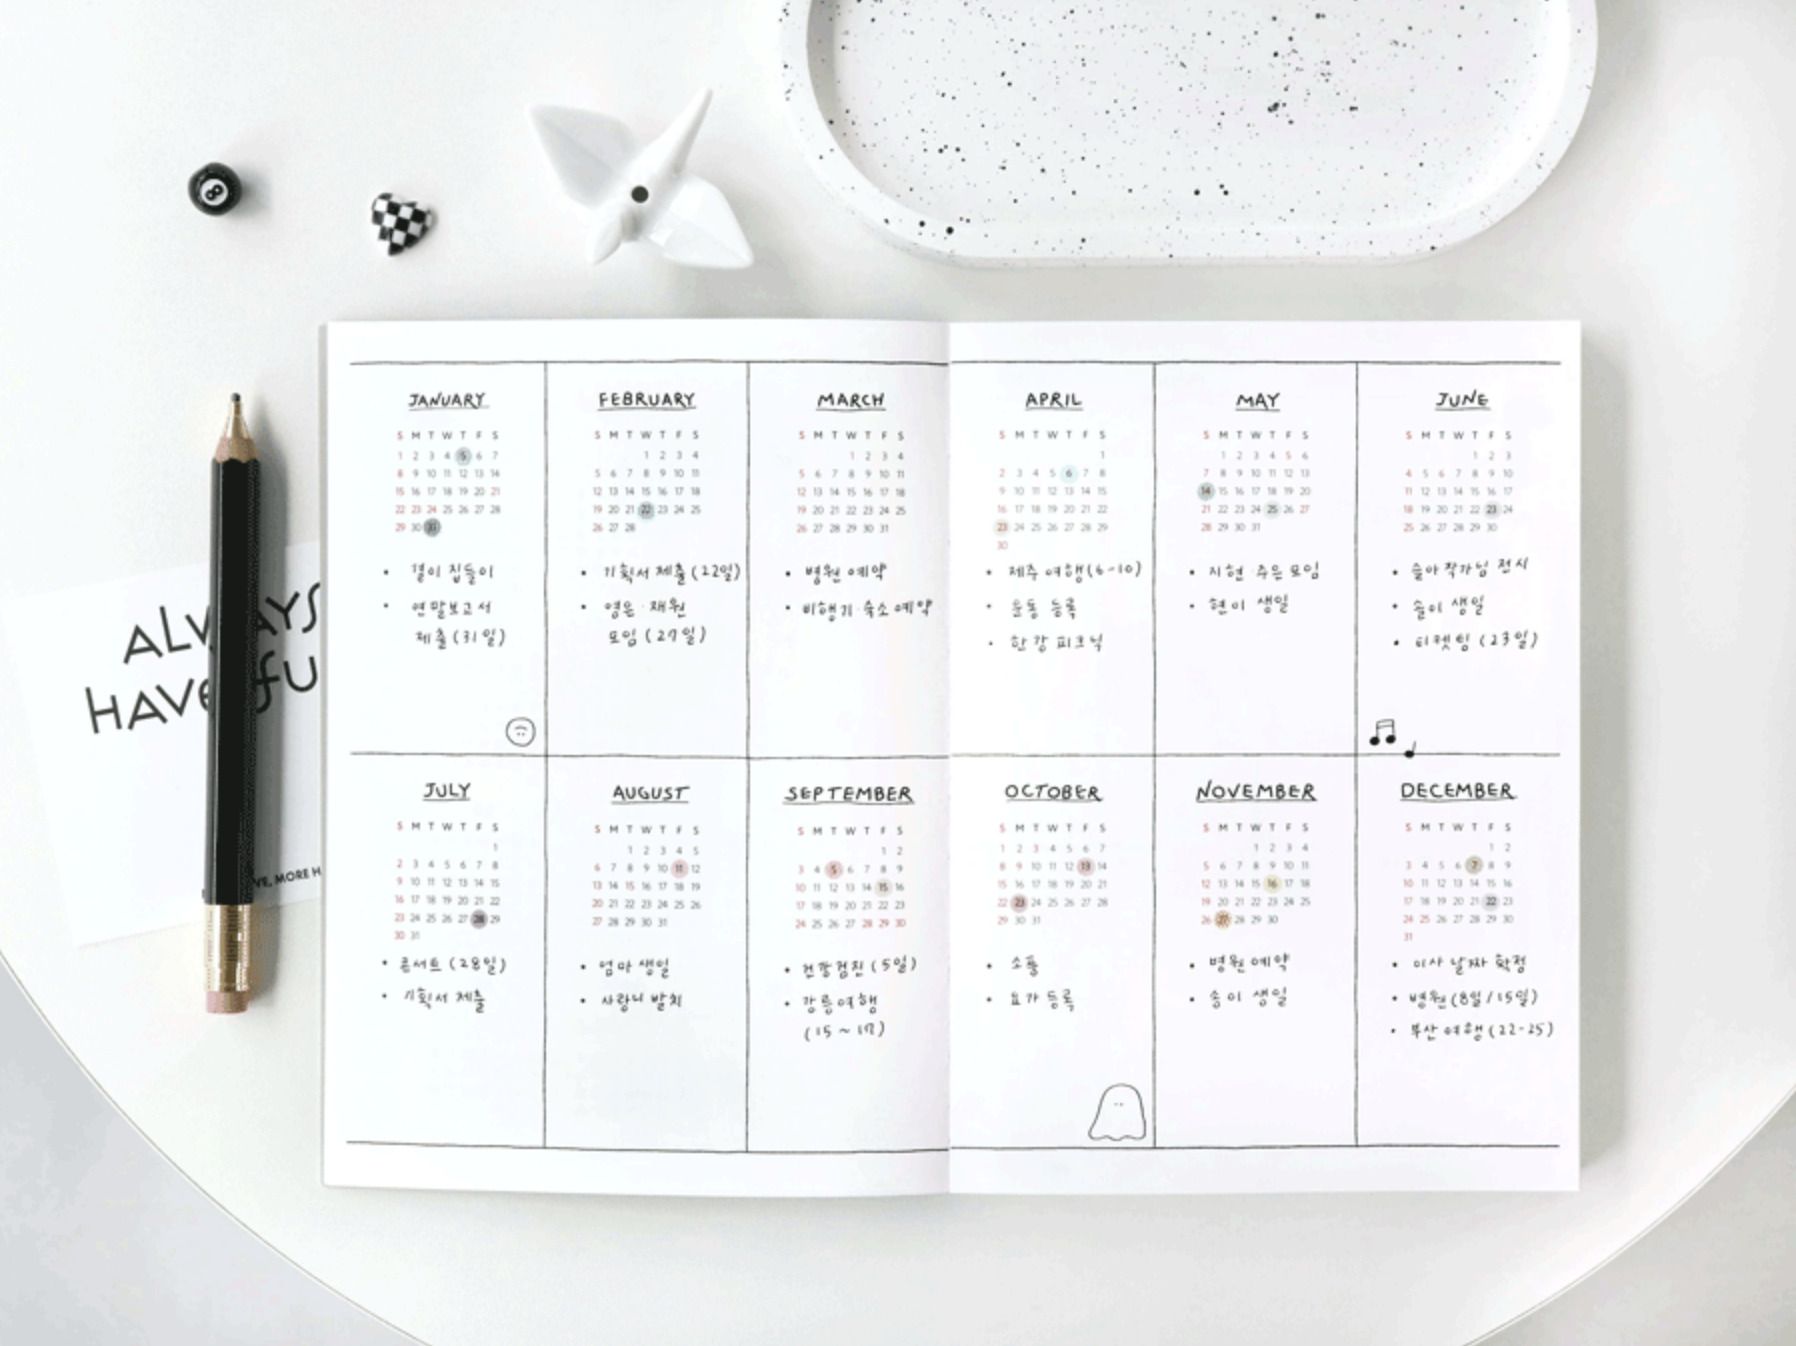 8
ALWAYS
HAVE FU
VE, MORE H
JANUARY
S M T W T F S
1 2 3 4 5 6 7
8 9 10 11 12 13 14
15 16 17 18 19 20 21
22 23 24 25 26 27 28
29 30 31
• 결이 집들이
• 연말보고서
제출 (31일)
FEBRUARY
S M T W T F S
1 2 3 4
5 6 7 8 9 10 11
12 13 14 15 16 17 18
19 20 21 22 23 24 25
26 27 28
• 기획서 제출 (22일)
• 영은·채원
모임 (27일)
MARCH
S M T W T F S
1 2 3 4
5 6 7 8 9 10 11
12 13 14 15 16 17 18
19 20 21 22 23 24 25
26 27 28 29 30 31
• 병원 예약
• 비행기·숙소 예약
APRIL
S M T W T F S
1
2 3 4 5 6 7 8
9 10 11 12 13 14 15
16 17 18 19 20 21 22
23 24 25 26 27 28 29
30
• 제주 여행 (6-10)
• 운동 등록
• 한강 피크닉
MAY
S M T W T F S
1 2 3 4 5 6
7 8 9 10 11 12 13
14 15 16 17 18 19 20
21 22 23 24 25 26 27
28 29 30 31
• 지현·주은 모임
• 현이 생일
JUNE
S M T W T F S
1 2 3
4 5 6 7 8 9 10
11 12 13 14 15 16 17
18 19 20 21 22 23 24
25 26 27 28 29 30
• 솔아작가님 전시
• 솔이 생일
• 티켓팅 (23일)
JULY
S M T W T F S
1
2 3 4 5 6 7 8
9 10 11 12 13 14 15
16 17 18 19 20 21 22
23 24 25 26 27 28 29
30 31
• 콘서트 (28일)
• 기획서 제출
AUGUST
S M T W T F S
1 2 3 4 5
6 7 8 9 10 11 12
13 14 15 16 17 18 19
20 21 22 23 24 25 26
27 28 29 30 31
• 엄마 생일
• 사랑니 발치
SEPTEMBER
S M T W T F S
1 2
3 4 5 6 7 8 9
10 11 12 13 14 15 16
17 18 19 20 21 22 23
24 25 26 27 28 29 30
• 건강검진 (5일)
• 강릉여행
(15~17)
OCTOBER
S M T W T F S
1 2 3 4 5 6 7
8 9 10 11 12 13 14
15 16 17 18 19 20 21
22 23 24 25 26 27 28
29 30 31
• 소풍
• 요가 등록
NOVEMBER
S M T W T F S
1 2 3 4
5 6 7 8 9 10 11
12 13 14 15 16 17 18
19 20 21 22 23 24 25
26 27 28 29 30
• 병원 예약
• 송이 생일
DECEMBER
S M T W T F S
1 2
3 4 5 6 7 8 9
10 11 12 13 14 15 16
17 18 19 20 21 22 23
24 25 26 27 28 29 30
31
• 이사 날짜 확정
• 병원 (8일/15일)
• 부산 여행 (22-25)